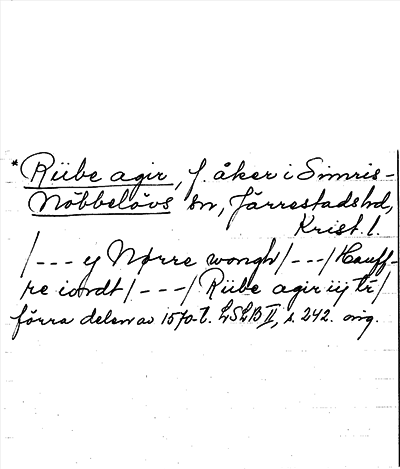 * Rübe agir, f. åker i Simris-
Nöbbelövs sn, Järrestads hd,
Krist. l.
/--- y Nørre wongh/---/Hauff-
re iordt/---/Rübe agir iij tr/
förra delen av 1570-t. LSLB II, s. 242. orig.